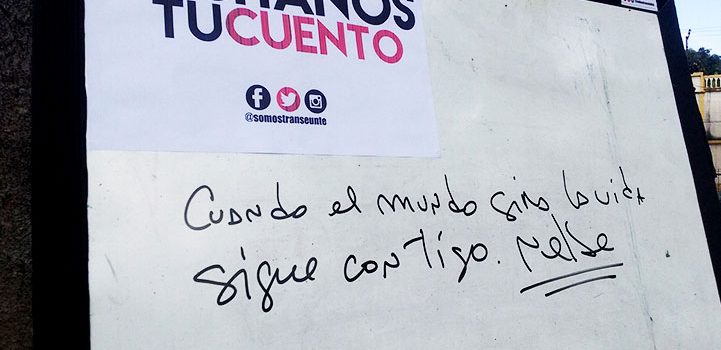 TUCUENTO
@somostranseunte
Cuando el mundo gira la vida
sigue contigo. Nelse